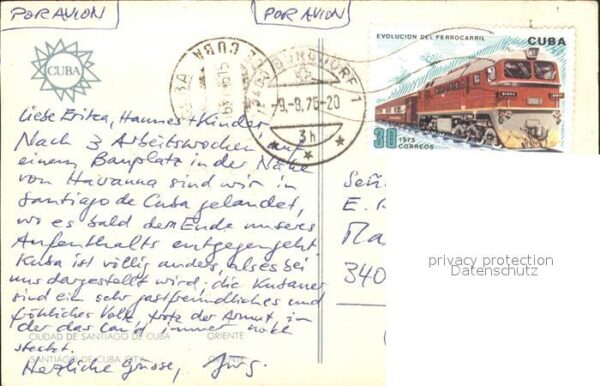 POR AVION
POR AVION
CUBA
CUBA
BURGDORF 1
-9.-8.76-20
3h
EVOLUCION DEL FERROCARRIL
CUBA
30
1975
CORREOS
Liebe Erika, Hannes + Kinder,
Nach 3 Arbeitswochen auf
einem Bauplatz in der Nähe
von Havanna sind wir in
Santiago de Cuba gelandet,
wo es bald dem Ende unseres
Aufenthalts entgegengeht.
Kuba ist völlig anders, als es bei
uns dargestellt wird, die Kubaner
sind ein sehr gastfreundliches und
fröhliches Volk trotz der Armut, in
der das Land immer noch
steckt.
Herzliche Grüsse, Jürg.
CIUDAD DE SANTIAGO DE CUBA ORIENTE
SANTIAGO DE CUBA CITY ORIENTE
Señ
E.
340
privacy protection
Datenschutz